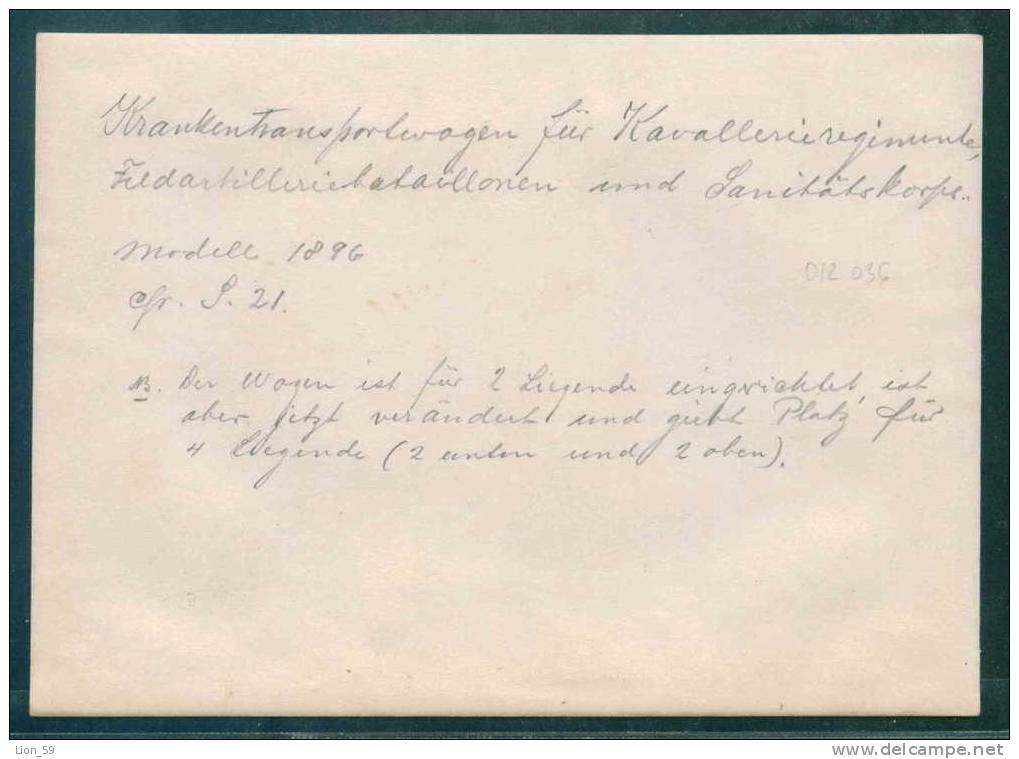 Krankentransportwagen für Kavallerieregimente,
Feldartilleriebataillonen und Sanitätskorps.
Modell 1896
012 036
cfr. S. 21.
NB. Der Wagen ist für 2 Liegende eingerichtet, ist
aber jetzt verändert und giebt Platz für
4 Liegende (2 unten und 2 oben).
Lion_59
www.delcampe.net